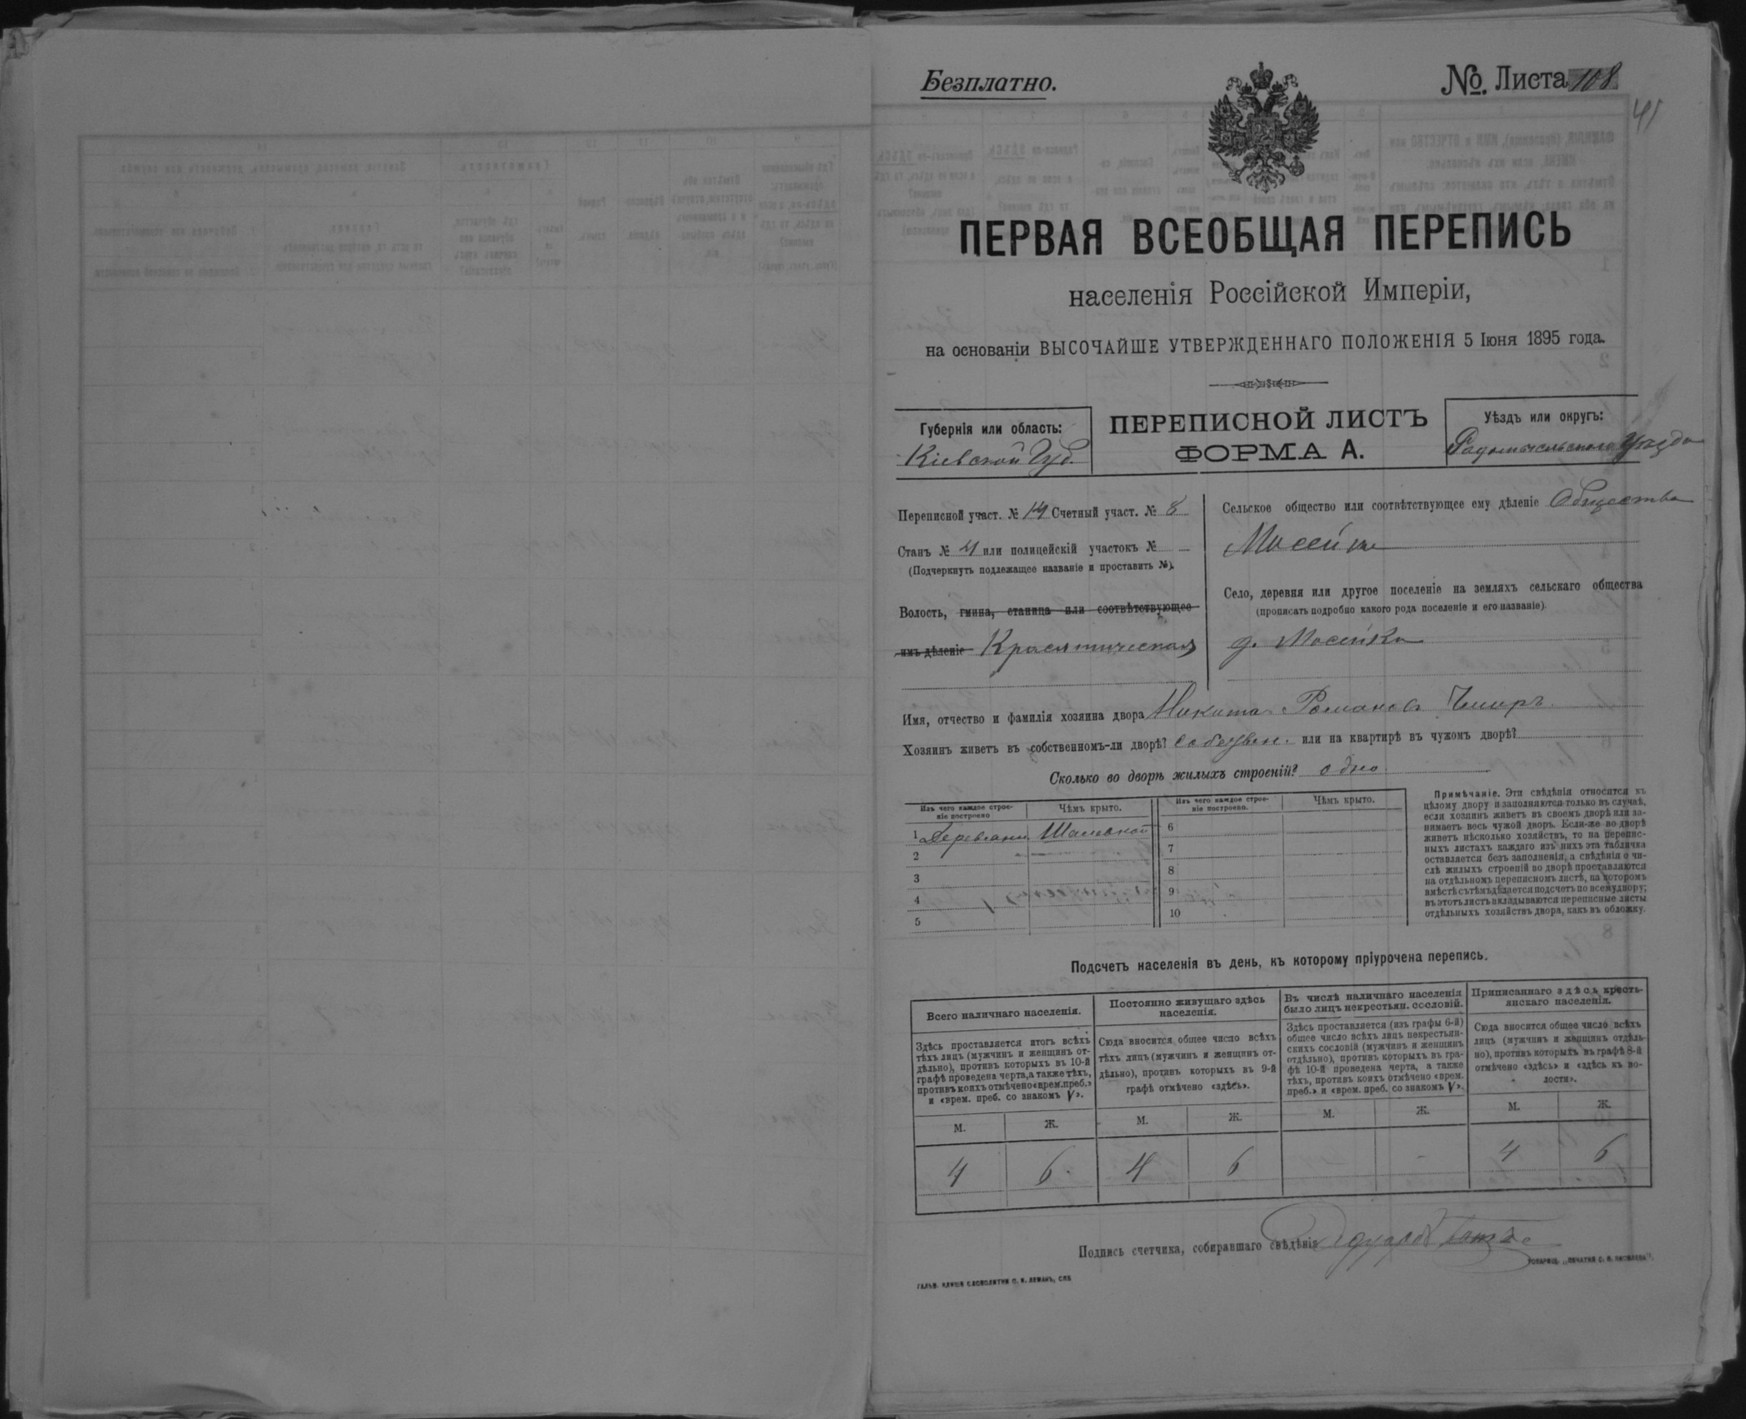 Безплатно.
№. Листа 108
41
ПЕРВАЯ ВСЕОБЩАЯ ПЕРЕПИСЬ
населенія Россійской Имперіи,
на основаніи ВЫСОЧАЙШЕ УТВЕРЖДЕННАГО ПОЛОЖЕНІЯ 5 Іюня 1895 года.
Губернія или область:
Кіевской Губ.
ПЕРЕПИСНОЙ ЛИСТЪ
ФОРМА А.
Уѣздъ или округъ:
Радомысльскаго Уѣзда
Переписной участ. № 14 Счетный участ. № 8
Станъ № 4 или полицейскій участокъ № —
(Подчеркнуть подлежащее названіе и проставить №).
Волость, гмина, станица или соотвѣтствующее
имъ дѣленіе Красятическая
Сельское общество или соотвѣтствующее ему дѣленіе Общества
Мосейки
Село, деревня или другое поселеніе на земляхъ сельскаго общества
(прописать подробно какого рода поселеніе и его названіе)
д. Мосейка
Имя, отчество и фамилія хозяина двора Никита Романовъ
Хозяинъ живетъ въ собственномъ-ли дворѣ? собствен. или на квартирѣ въ чужомъ дворѣ?
Сколько во дворѣ жилыхъ строеній? одно
Изъ чего каждое строе-
ніе построено
Чѣмъ крыто.
Изъ чего каждое строе-
ніе построено.
Чѣмъ крыто.
1 Деревяни. Шаломой
2
3
4
5
6
7
8
9
10
Примѣчаніе. Эти свѣдѣнія относятся къ
цѣлому двору и заполняются только въ случаѣ,
если хозяинъ живетъ въ своемъ дворѣ или за-
нимаетъ весь чужой дворъ. Если-же во дворѣ
живетъ нѣсколько хозяйствъ, то на перепис-
ныхъ листахъ каждаго изъ нихъ эта табличка
оставляется безъ заполненія, а свѣдѣнія о чи-
слѣ жилыхъ строеній во дворѣ проставляются
на отдѣльномъ переписномъ листѣ, на которомъ
вмѣстѣ съ тѣмъ дѣлается подсчетъ по всему двору;
въ этотъ листъ вкладываются переписные листы
отдѣльныхъ хозяйствъ двора, какъ въ обложку.
Подсчетъ населенія въ день, къ которому пріурочена перепись.
Всего наличнаго населенія.
Здѣсь проставляется итогъ всѣхъ
тѣхъ лицъ (мужчинъ и женщинъ от-
дѣльно), противъ которыхъ въ 10-й
графѣ проведена черта, а также тѣхъ,
противъ коихъ отмѣчено «врем. преб.»
и «врем. преб. со знакомъ V».
Постоянно живущаго здѣсь
населенія.
Сюда вносится общее число всѣхъ
тѣхъ лицъ (мужчинъ и женщинъ от-
дѣльно), противъ которыхъ въ 9-й
графѣ отмѣчено «здѣсь».
Въ числѣ наличнаго населенія
было лицъ некрестьян. сословій.
Здѣсь проставляется (изъ графы 6-й)
общее число всѣхъ лицъ некрестьян-
скихъ сословій (мужчинъ и женщинъ
отдѣльно), противъ которыхъ въ гра-
фѣ 10-й проведена черта, а также
тѣхъ, противъ коихъ отмѣчено «врем.
преб.» и «врем. преб. со знакомъ V».
Приписаннаго здѣсь кресть-
янскаго населенія.
Сюда вносится общее число всѣхъ
лицъ (мужчинъ и женщинъ отдѣль-
но), противъ которыхъ въ графѣ 8-й
отмѣчено «здѣсь» и «здѣсь къ во-
лости».
М. Ж. М. Ж. М. Ж. М. Ж.
4 6 4 6 - 4 6
Подпись счетчика, собиравшаго свѣдѣнія Эдуардъ